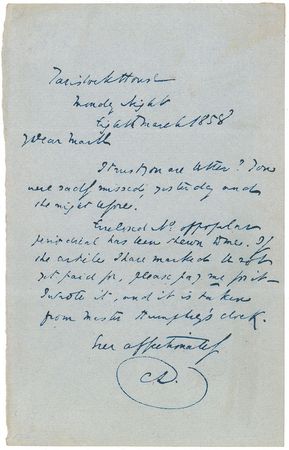 Tavistock House
Monday Night
Eighth March 1858
Dear Mark
I trust you are better? You
were sadly missed, yesterday and
the night before.
Enclosed No. of popular
periodical has been shewn to me. If
the article I have marked be not
yet paid for, please pay me for it –
I wrote it, and it is taken
from Master Humphrey's clock.
Ever affectionately
CD.